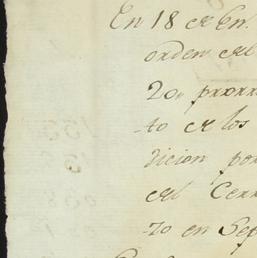 En 18 de En.
orden del
20, prorr
to de los
dicion por
del Cerr
zo en Sep